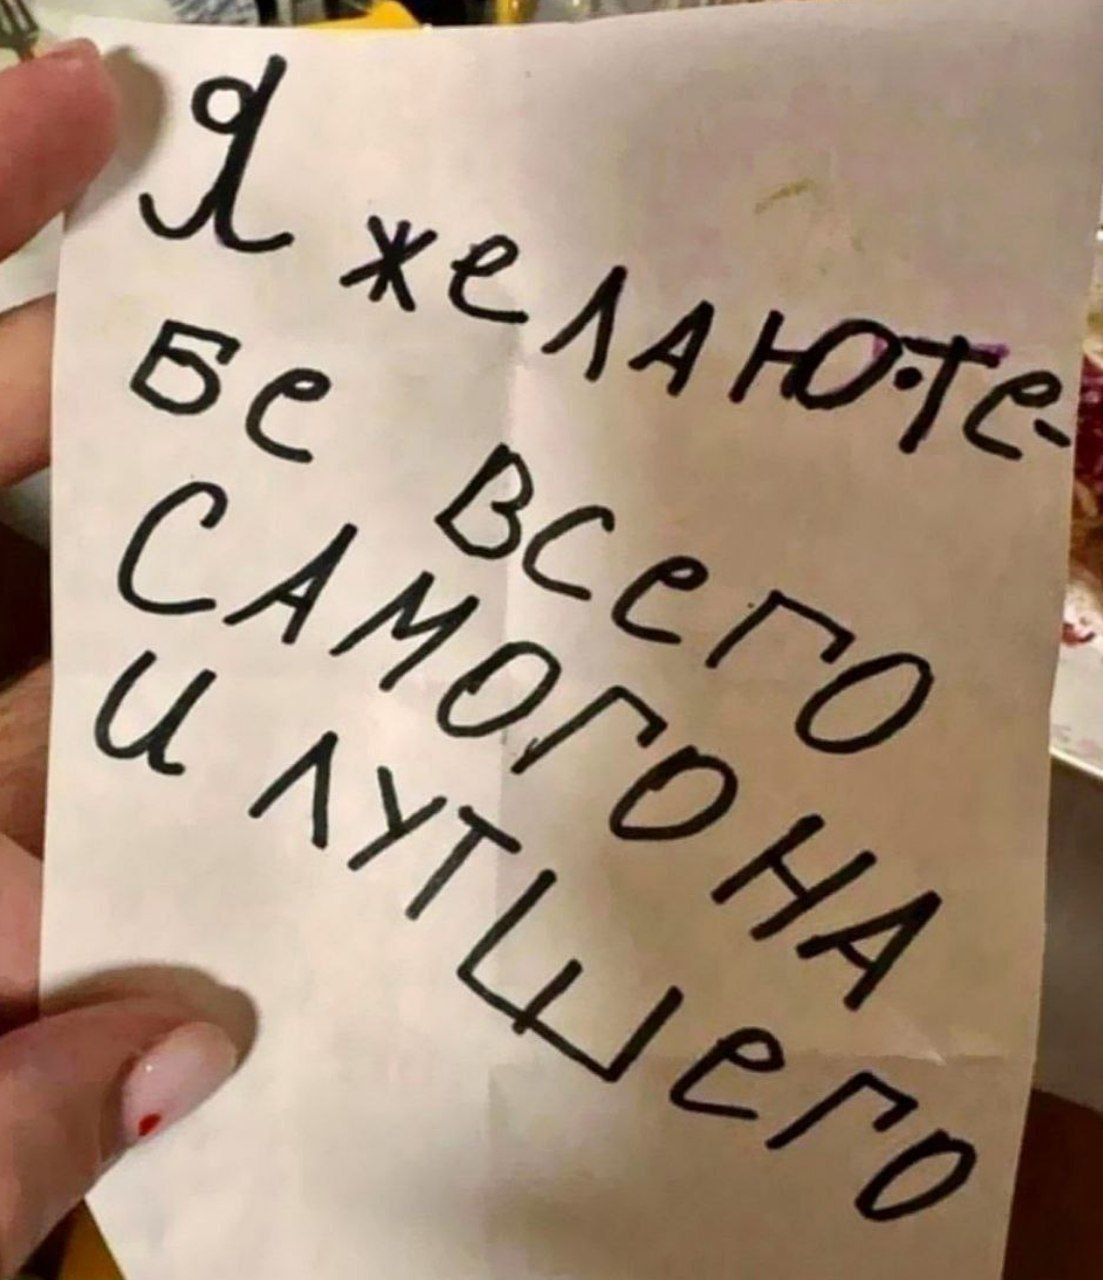 Я желаю.те-
бе всего
САМОГО НА
и лутшего